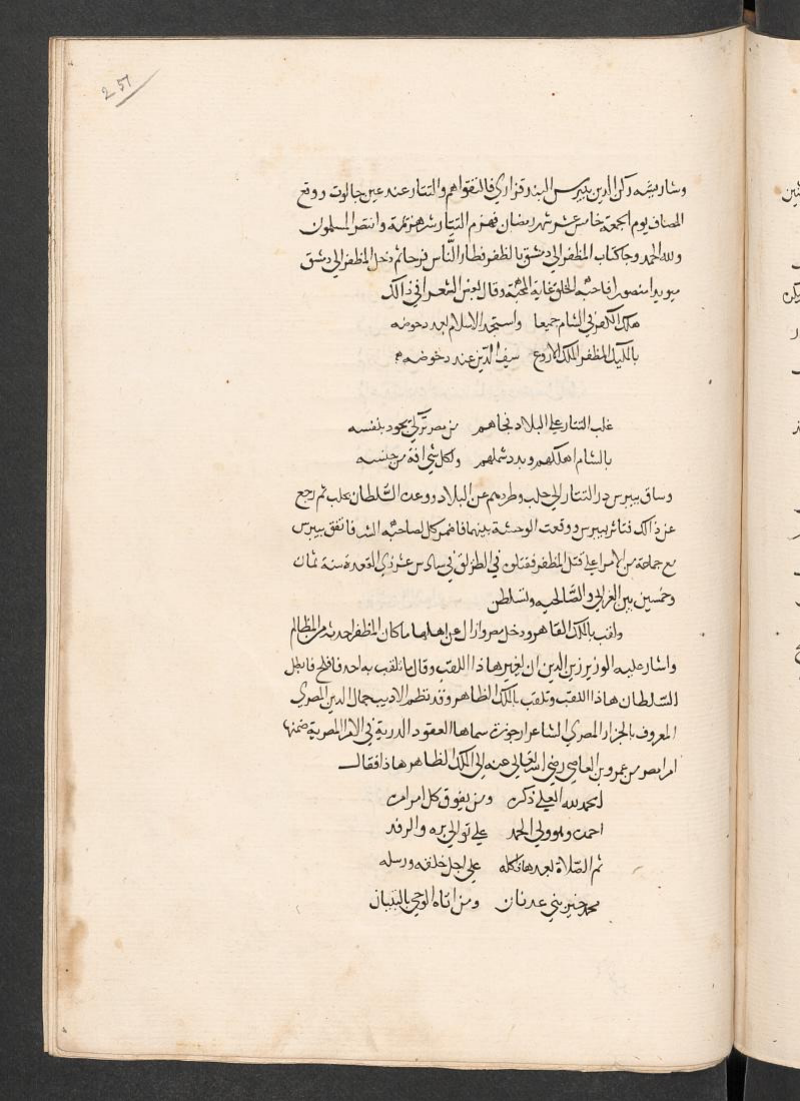 257
وشاليشه ركن الدين بيبرس البندقداري فالتقوا هم والتتار عند عين جالوت ووقع
المصاف يوم الجمعة خامس عشر شهر رمضان فهزم التتار شر هزيمة وانتصر المسلمون
ولله الحمد وجا كتاب المظفر الي دمشق بالظفر فطار الناس فرحا ثم دخل المظفر الي دمشق
مويدا منصورا فاحبه الخلق غاية المحبة وقال بعض الشعرا في ذالك
هلك الكفر في الشام جميعا واستجد الاسلام بعد دحوضه
بالمليك المظفر الملك الاروع سيف الدين عند دحوضه
غلب التتار علي البلاد فجاهم من مصر تركي يجود بنفسه
بالشام اهلكهم وبدد شملهم ولكل شي افة من جنسه
وساق بيبرس ورا التتار الي حلب وطردهم عن البلاد ووعده السلطان بحلب ثم رجع
عن ذالك فتاثر بيبرس ووقعت الوحشة بينهما فاضمر كل لصاحبه الشر فاتفق بيبرس
مع جماعة من الامرا علي قتل المظفر فقتلوه في الطريق في سادس عشر ذي القعدة سنة ثمان
وخمسين بين الغرابي والصالحيه وتسلطن
ولقب بالملك القاهر ودخل مصر وازال عن اهلها ما كان المظفر احدثه من المظالم
واشار عليه الوزير زين الدين ان يغير هاذا اللقب وقال ما تلقب به احد فافلح فابطل
السلطان هاذا اللقب وتلقب بالملك الظاهر وقد نظم الاديب جمال الدين المصري
المعروف بالجزار المصري الشاعر ارجوزة سماها العقود الدرية في الامرا المصرية ضمنها
امرا مصر من عمرو بن العاصي رضي الله تعالي عنه الي الملك الظاهر هاذا فقال
الحمد لله العلي ذكره ومن يفوق كل امر امره
احمده وهو ولي الحمد علي توالي بره والرفد
ثم الصلاة بعد هاذا كله علي اجل خلقه ورسله
محمد خير بني عدنان ومن اتاه الوحي بالبيان